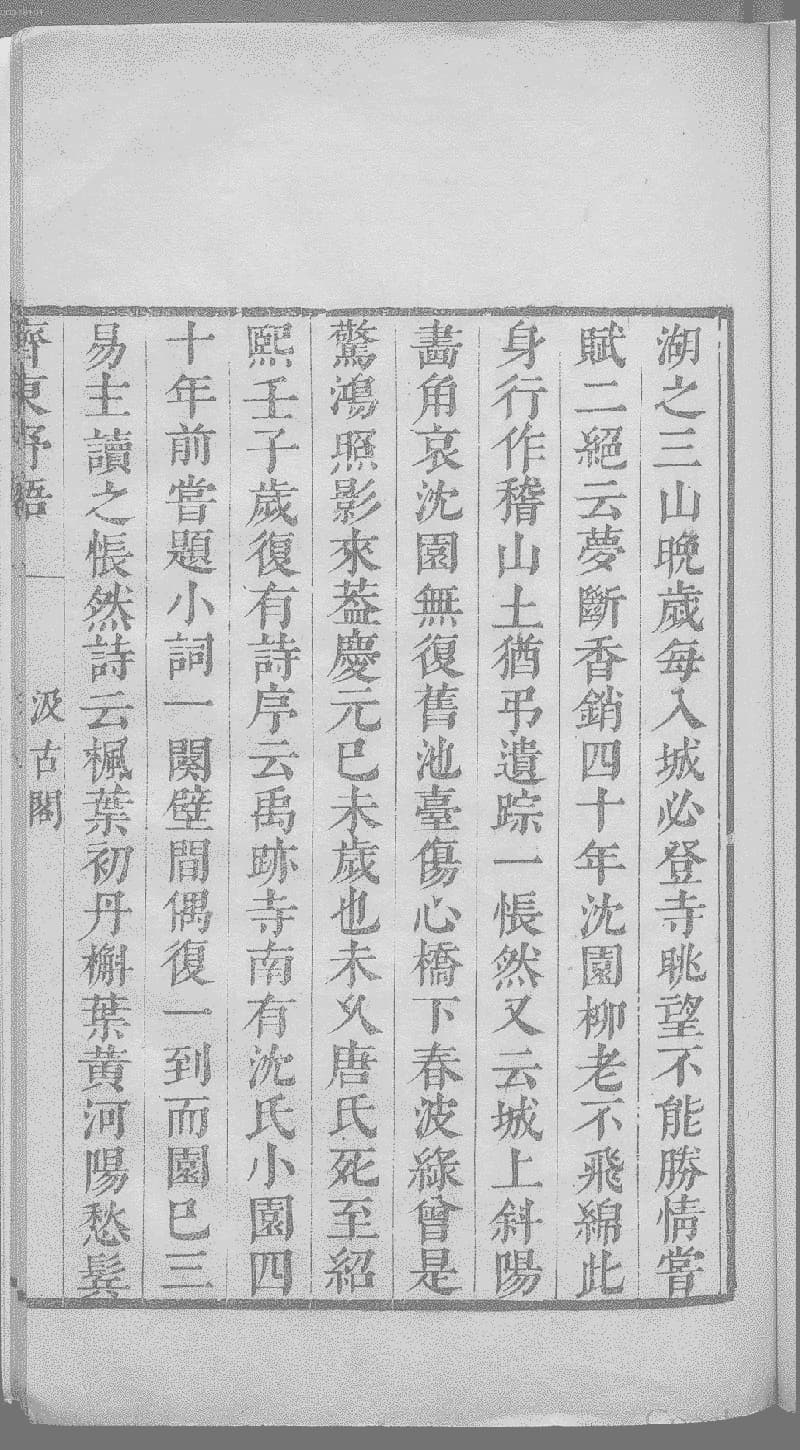 湖之三山晚歲每入城必登寺眺望不能勝情嘗
賦二絕云夢斷香銷四十年沈園柳老不飛綿此
身行作稽山土猶弔遺踪一悵然又云城上斜陽
畵角哀沈園無復舊池臺傷心橋下春波綠曾是
驚鴻照影來葢慶元巳未歲也未乆唐氏死至紹
熙壬子歲復有詩序云禹跡寺南有沈氏小園四
十年前嘗題小詞一闋壁間偶復一到而園巳三
易主讀之悵然詩云楓葉初丹槲葉黃河陽愁鬂
齊東野語
汲古閣